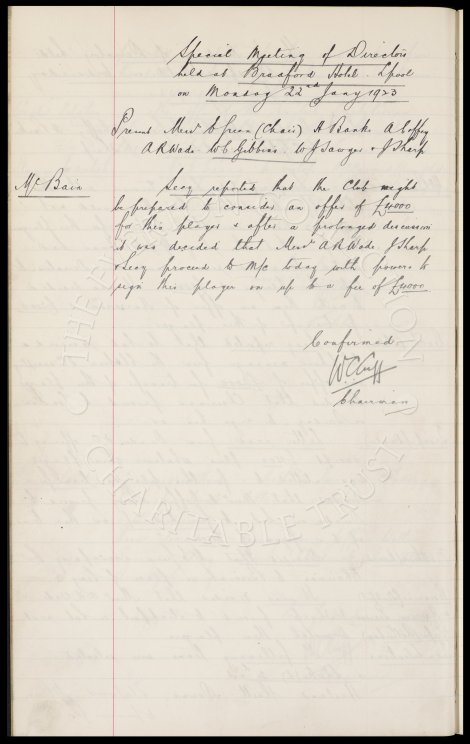 Special Meeting of Directors
held at Bradford Hotel L'pool
on Monday 22nd Jany 1923
Present Messrs E Green (Chair) H Banks A Coffey
A R Wade W C Gibbins W J Sawyer & J Sharp
Mc Bain
Secy reported that the Club might
be prepared to consider an offer of £4000
for this player & after a prolonged discussion
it was decided that Messrs A R Wade J Sharp
& Secy proceed to M/c today with powers to
sign this player on up to a fee of £4000
Confirmed
W.C. Cuff
Chairman
CHARITABLE TRUST